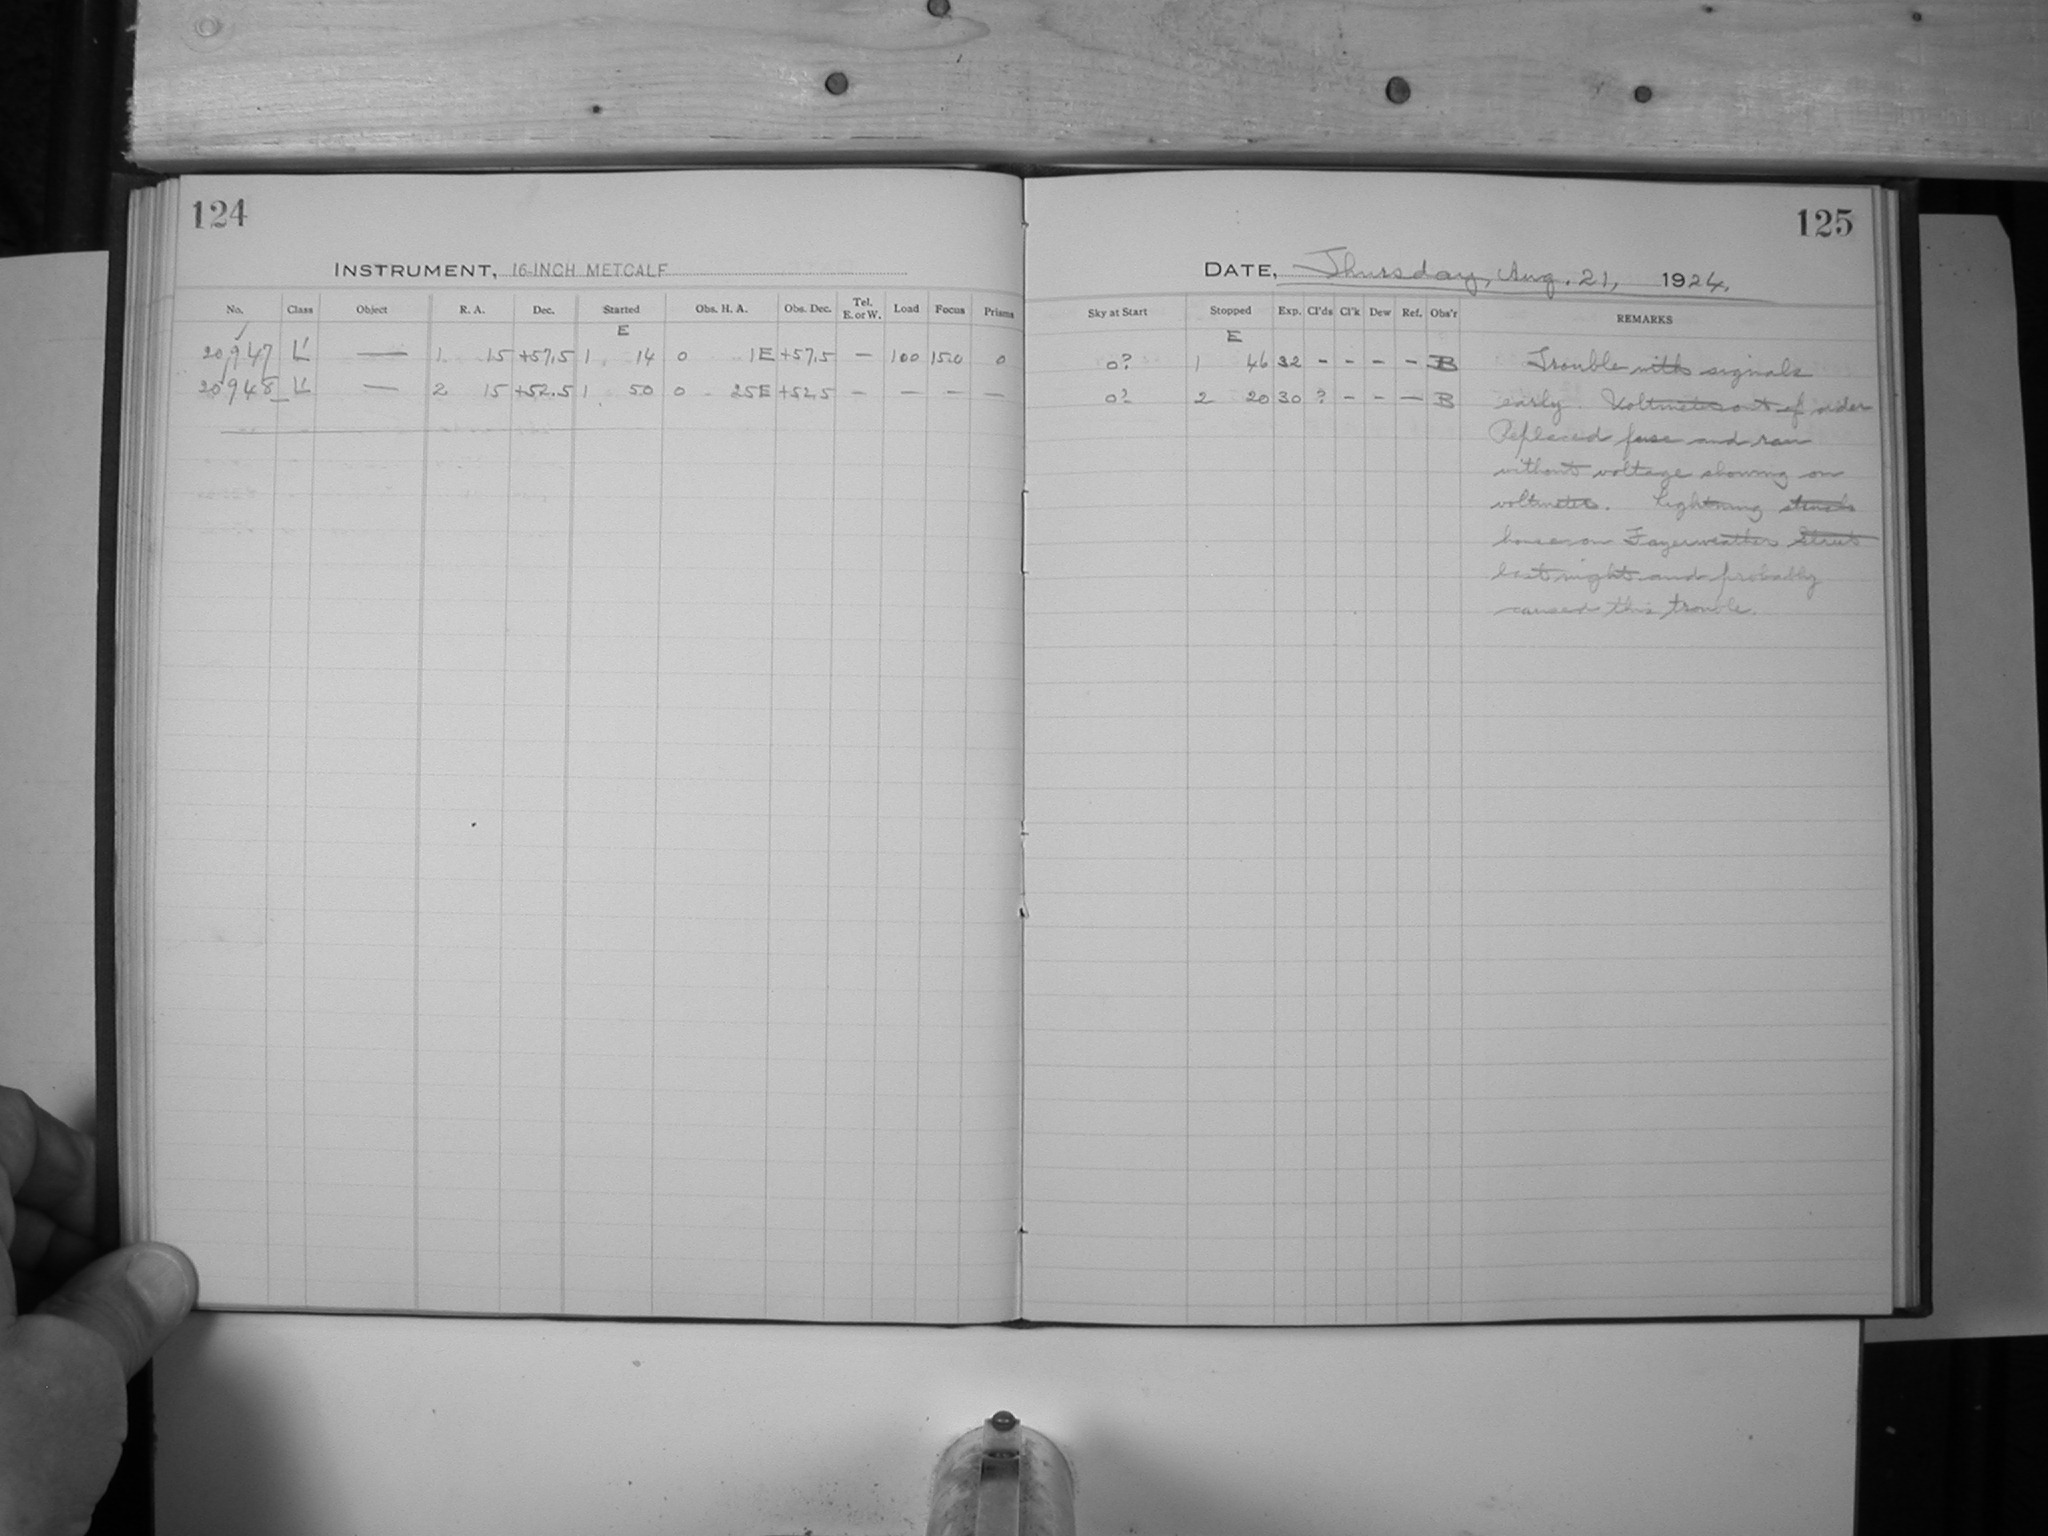 124
INSTRUMENT, 16-INCH METCALF
No. Class Object R. A. Dec. Started Obs. H. A. Obs. Dec. Tel. E. or W. Load Focus Prisms
E
20947 L' — 1 15 +57.5 1 14 0 1E +57.5 — 100 15.0 0
20948 L' — 2 15 +52.5 1 50 0 25E +52.5 — — — —
125
DATE, Thursday, Aug. 21, 1924.
Sky at Start Stopped Exp. Cl'ds Cl'k Dew Ref. Obs'r REMARKS
E
0? 1 46 32 - - - - B Trouble with signals
0? 2 20 30 ? - - — B early. Voltmeter out of order
Replaced fuse and ran
without voltage showing on
voltmeter. Lightning struck
house on Fayerweather Street
last night and probably
caused this trouble.